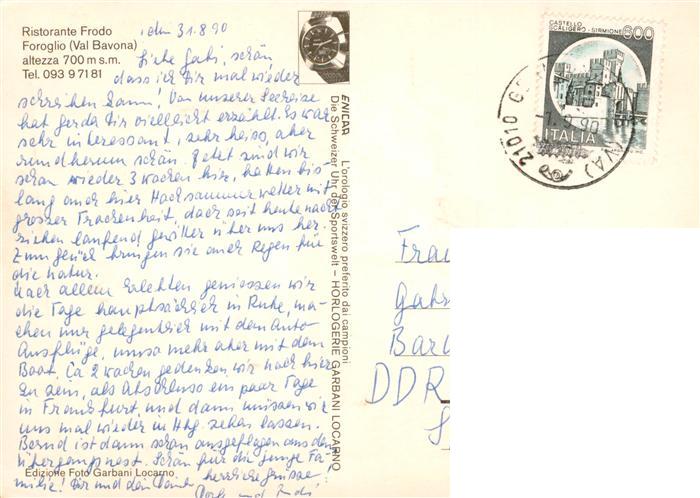 Ristorante Frodo
Foroglio (Val Bavona)
altezza 700 m s.m.
Tel. 093 97181
den 31.8.90
Liebe Gabi, schön,
dass ich Dir mal wieder
schreiben kann! Von unserer Seereise
hat Gerda Dir vielleicht erzählt. Es war
sehr interessant, sehr heiss, aber
rundherum schön. Jetzt sind wir
schon wieder 3 Wochen hier, hatten bis-
lang auch hier Hochsommerwetter mit
grosser Trockenheit, doch seit heute nacht
ziehen laufend Gewitter über uns her.
Zum Glück bringen sie auch Regen für
die Natur.
Nach allem Erlebten geniessen wir
die Tage hauptsächlich in Ruhe, ma-
chen nur gelegentlich mit dem Auto
Ausflüge, umso mehr aber mit dem
Boot. Ca 2 Wochen gedenken wir noch hier
zu sein, als Abschluss ein paar Tage
in Frankfurt, und dann müssen wir
uns mal wieder in Hbg. sehen lassen.
Bernd ist dann schon ausgeflogen aus dem
Schön für die junge Fa-
milie! Dir und den herzliche Grüsse
und
Edizione Foto Garbani Locarno
ENICAR L'orologio svizzero preferito dai campioni
Die Schweizer Uhr der Sportswelt – HORLOGERIE GARBANI LOCARNO
CASTELLO
SCALIGERO - SIRMIONE
600
ITALIA
21010
(VA)
1.9.90
Frau
Gab
Bar
DDR